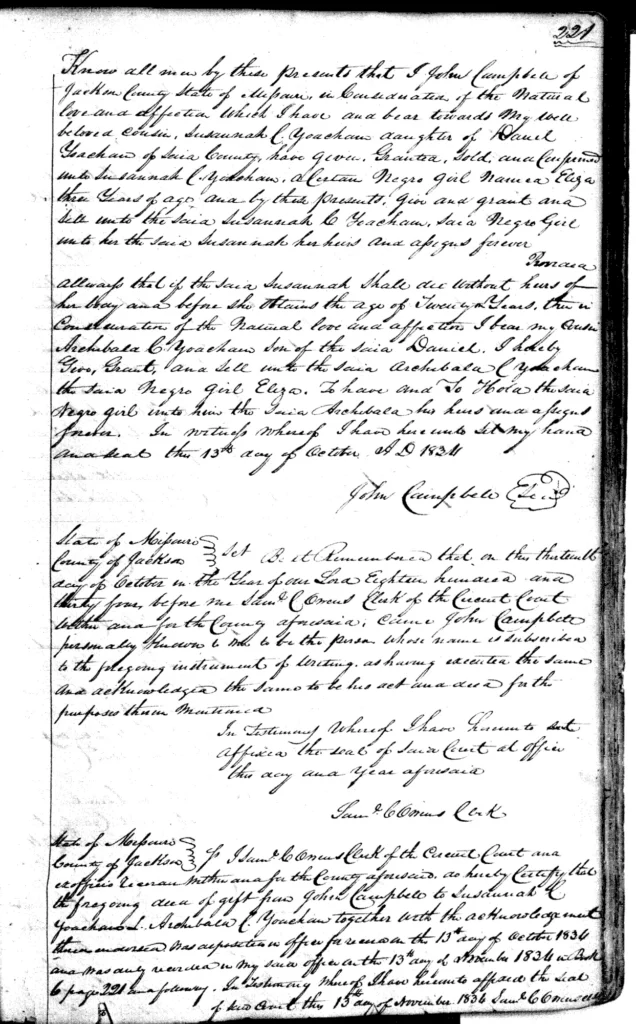 221
Know all men by these Presents that I John Campbell of
Jackson County State of Missouri, in Consideration of the Natural
love and affection which I have and bear towards My well
beloved Cousin, Susannah C. Yoacham daughter of Daniel
Yoacham of said County, have Given, Granted, Sold, and Confirmed
unto Susannah C. Yoacham, a Certain Negro Girl Named Eliza
three Years of age and by these presents, Give and grant and
Sell unto the said Susannah C Yoacham, said Negro Girl
unto her the said Susannah her heirs and assigns forever
Provided
allways that if the said Susannah Shall die without heirs of
her body and before she obtains the age of Twenty Years, then in
Consideration of the Natural love and affection I bear my Cousin
Archibald C. Yoacham Son of the said Daniel, I hereby
Give, Grant, and Sell unto the said Archibald C Yoacham
the said Negro Girl Eliza. To have and To Hold the said
Negro girl unto him the said Archibald his heirs and assigns
forever. In witness whereof I have hereunto Set my hand
and seal this 13th day of October A D 1834
John Campbell Seal
State of Missouri
County of Jackson Sct Be it Remembered that on this thirteenth
day of October in the Year of our Lord Eighteen hundred and
thirty four, before me Saml C Owens Clerk of the Circuit Court
within and for the County aforesaid, Came John Campbell
personally Known to me to be the person whose name is subscribed
to the foregoing instrument of Writing, as having executed the same
and acknowledged the same to be his act and deed for the
purposes therein Mentioned
In Testimony Whereof I have hereunto set
affixed the seal of said Court at office
this day and Year aforesaid
Saml C Owens Clerk
State of Missouri
County of Jackson I Saml C Owens Clerk of the Circuit Court and
exofficio Recorder within and for the County aforesaid, do hereby Certify that
the foregoing deed of gift from John Campbell to Susannah C
Yoacham & Archibald C Yoacham together with the acknowledgement
thereon endorsed was deposited in office for record on the 13th day of October 1834
and was duly recorded in my said office on the 13th day of November 1834 in Book
6 page 221 and following. In Testimony whereof I have hereunto affixed the seal
of said Court this 13th day of November 1834 Saml C Owens Clk